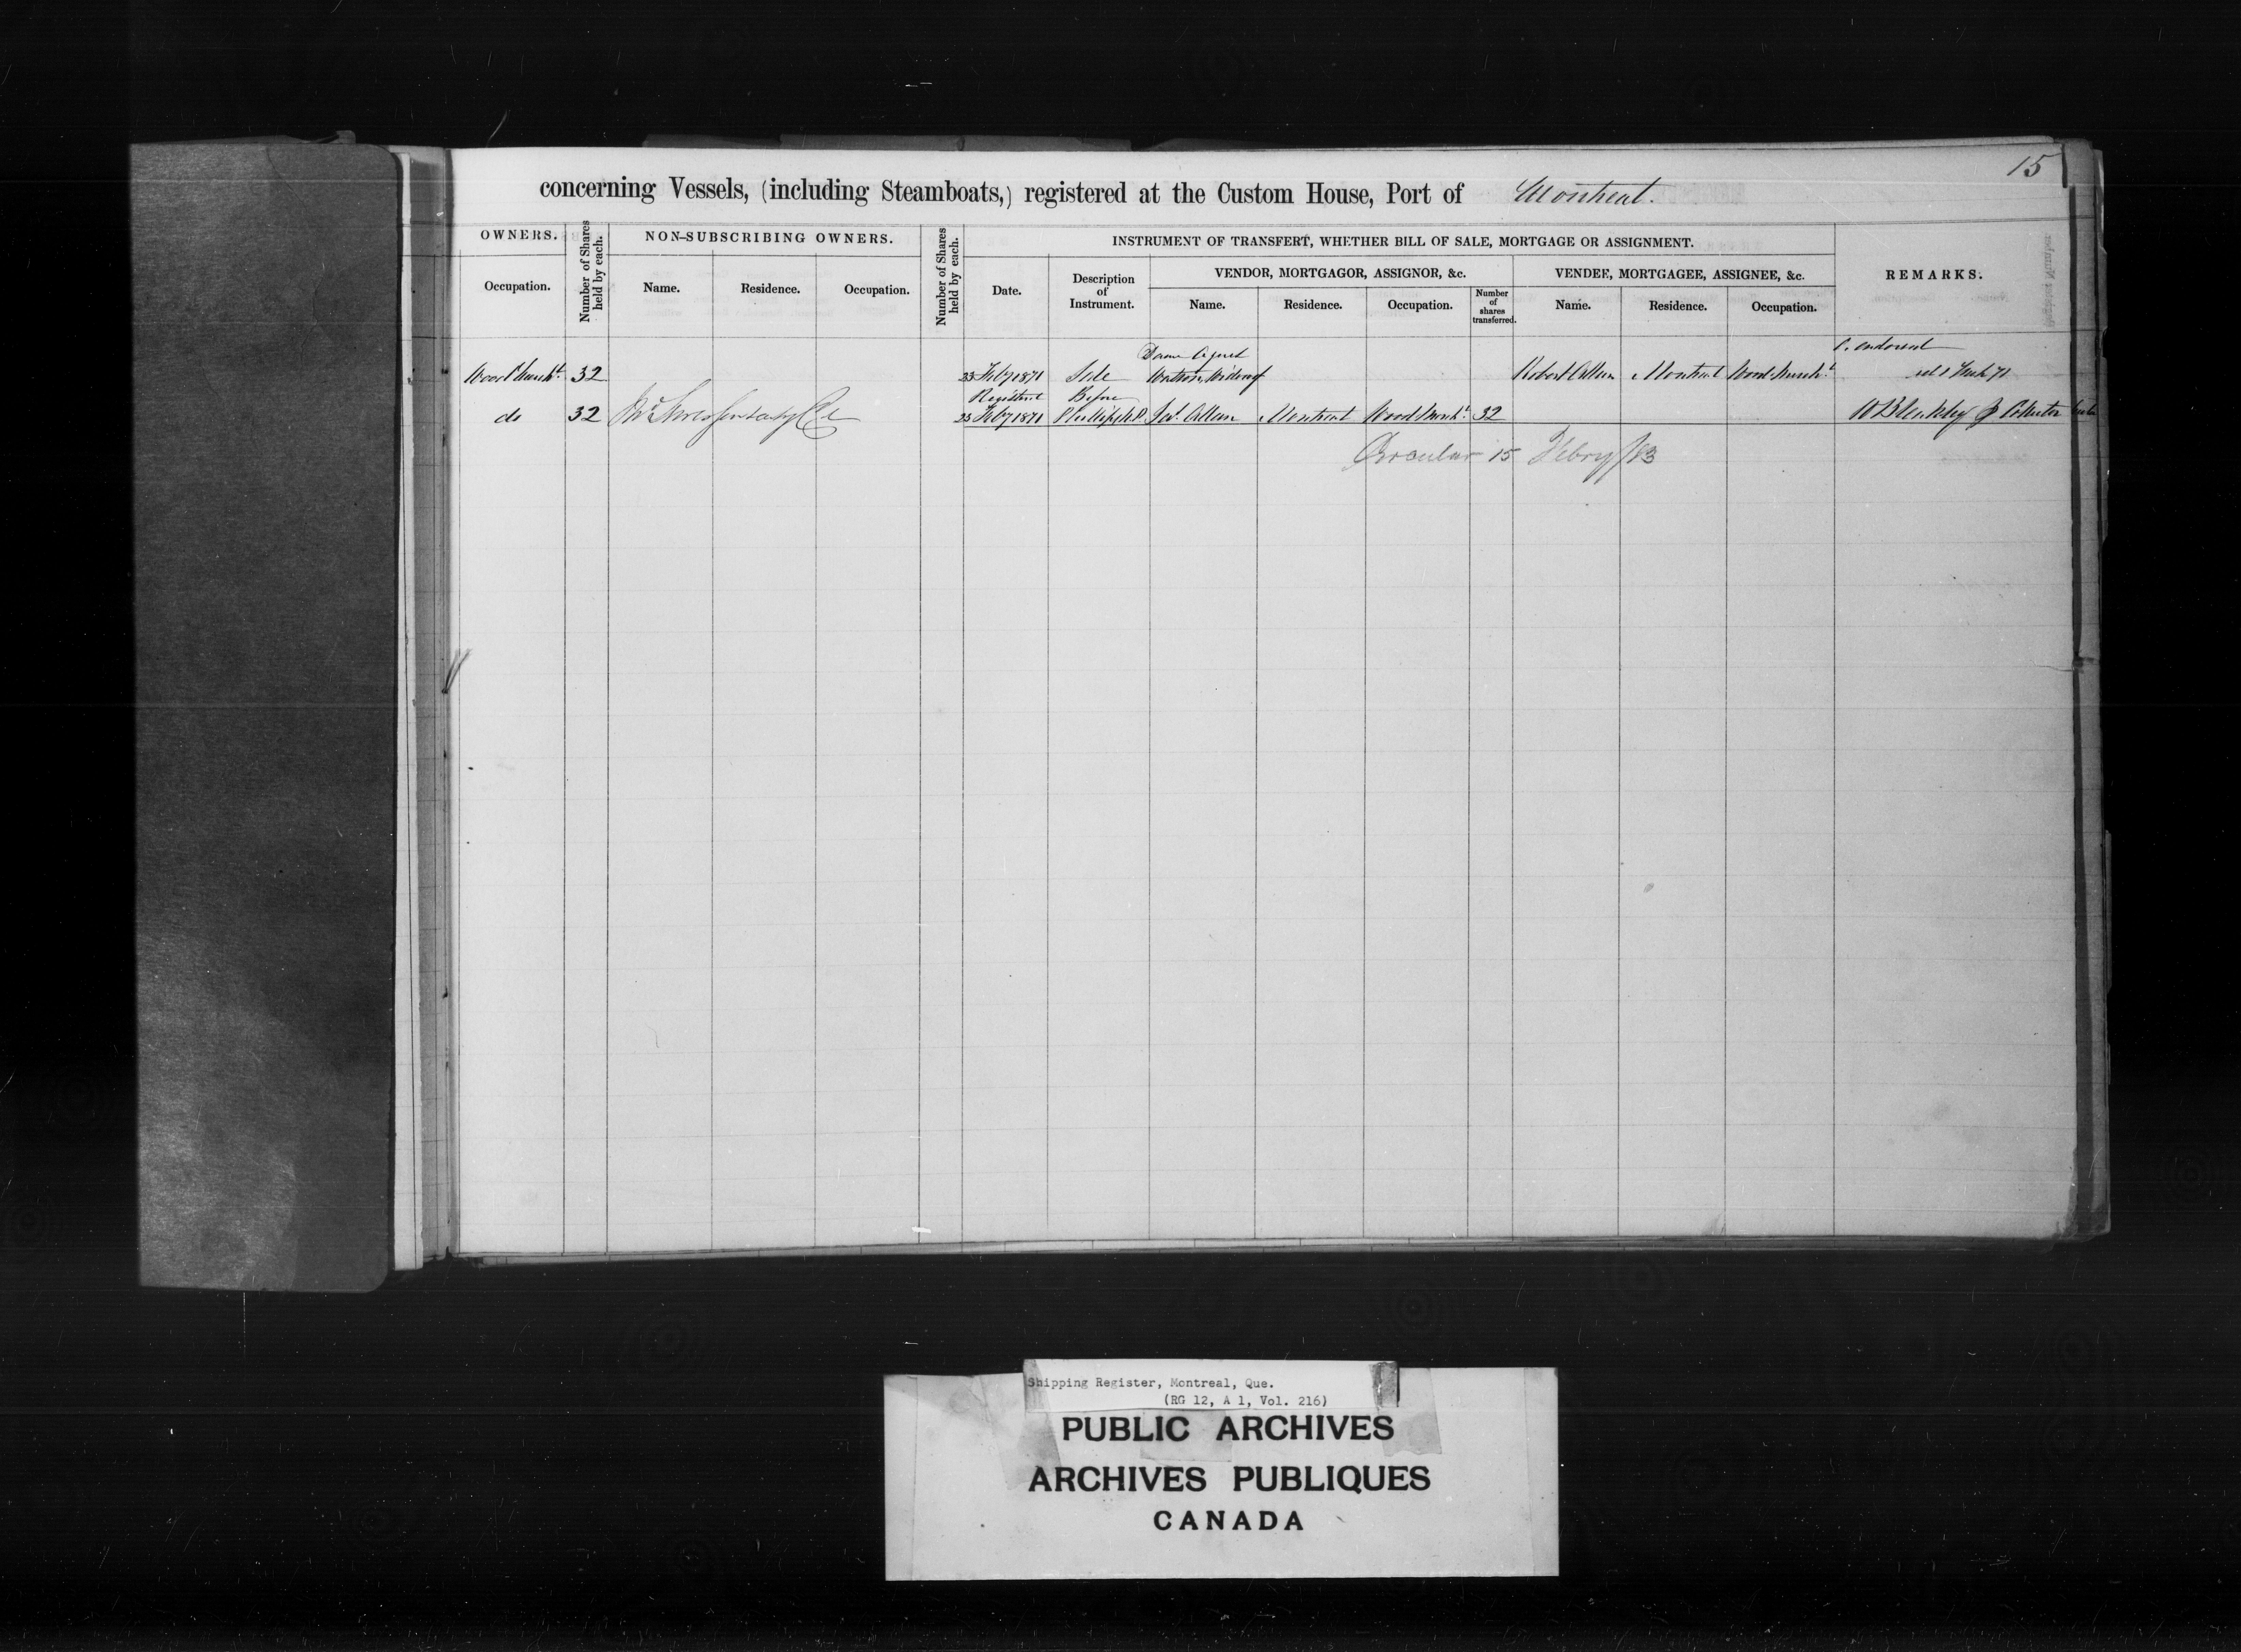 15
concerning Vessels, (including Steamboats,) registered at the Custom House, Port of Montreal.
OWNERS.
Number of Shares held by each.
NON-SUBSCRIBING OWNERS.
Number of Shares held by each.
INSTRUMENT OF TRANSFERT, WHETHER BILL OF SALE, MORTGAGE OR ASSIGNMENT.
REMARKS.
VENDOR, MORTGAGOR, ASSIGNOR, &c.
VENDEE, MORTGAGEE, ASSIGNEE, &c.
Occupation.
Name.
Residence.
Occupation.
Date.
Description
of
Instrument.
Name.
Residence.
Occupation.
Number
of
shares
transferred.
Name.
Residence.
Occupation.
Dame
endorsed
Wood Mercht. 32 23 Feby 1871 Sale Watson, Widow of Robert Montreal Wood Mercht.
Registered Before
do 32 23 Feby 1871 Montreal Wood Mercht. 32 Collector
Circular 15 Febry/83
Shipping Register, Montreal, Que.
(RG 12, A 1, Vol. 216)
PUBLIC ARCHIVES
ARCHIVES PUBLIQUES
CANADA